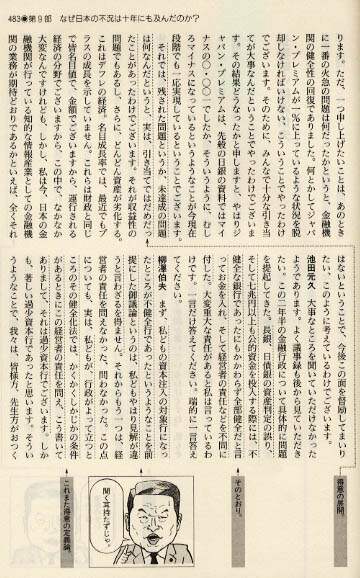 483●第9部 なぜ日本の不況は十年にも及んだのか?
ります。ただ、一つ申し上げたいことは、あのとき
に一番の火急の問題は何だったかというと、金融機
関の健全性の回復でありました。何とかしてジャパ
ン・プレミアムが一%に上っているような状況を脱
却しなければいけない、こういうことでやったわけ
でございます。そのために、みんなで十分な引き当
てが大事なんだということでやったわけでございま
す。その結果どうなったかと申しますと、やはりジ
ャパン・プレミアムは、先般の日銀の資料ではマイ
ナスの〇・〇〇でしたか、そういうように、むし
ろマイナスになっているというようなことが今現在
段階でも一応実現しているということでございます。
それでは、残された問題というか、未達成の問題
は何なんだというと、実は、引き当てではだめだっ
たことがあったわけでございます。それが収益性の
問題でもあるし、さらに、どんどん資産が劣化する。
これはデフレの経済。名目成長率では、最近でもプ
ラスの成長を示していません。これらは財政と同じ
で皆名目値で、金額でございますから、運行される
経済の分野でございますから、この中で、なかなか
大変なんですけれども、しかし、私は今、日本の金
融機関が行っている知的な情報産業としての金融機
関の業務が期待どおりであるかといえば、全くそれ
はないということで、今後この面を督励してまいり
たい、このように考えているわけでございます。
池田元久 大事なところを聞いていただけなかった
ようであります。よく議事録も後から見ていただき
たい。この二年半の金融行政について具体的に問題
を提起してきた。長銀、日債銀の資産判定の誤り、
そして七兆円以上も公的資金を投入する際には、不
健全な銀行であったにもかかわらず全部健全だと言
ってお金を入れ、そして経営者の責任などを不問に
付した。大変重大な責任があると私は言っているわ
けです。一言だけ答えてください。端的に一言答え
てください。
柳澤伯夫 まず、私どもの資本注入の対象行になっ
たところが不健全行であったというようなことを前
提にした御議論というのは、私どもやはり見解が違
うと言わざるを得ません。それからもう一つは、経
営者の責任を問えなかった、問わなかった。この点
についても、実は、私どもが、行政がよって立つと
ころのその健全化法では、かくかくしかじかの条件
があるときにこの経営者の責任を問え、こう書いて
ありまして、それは過少資本行でございます。しか
も、著しい過少資本行であったと思います。そうい
うようなことで、我々は、皆様方、先生方がおつく
得意の展開。
そのとおり。
聞く耳持たずじゃ。
これまた得意の定義論。